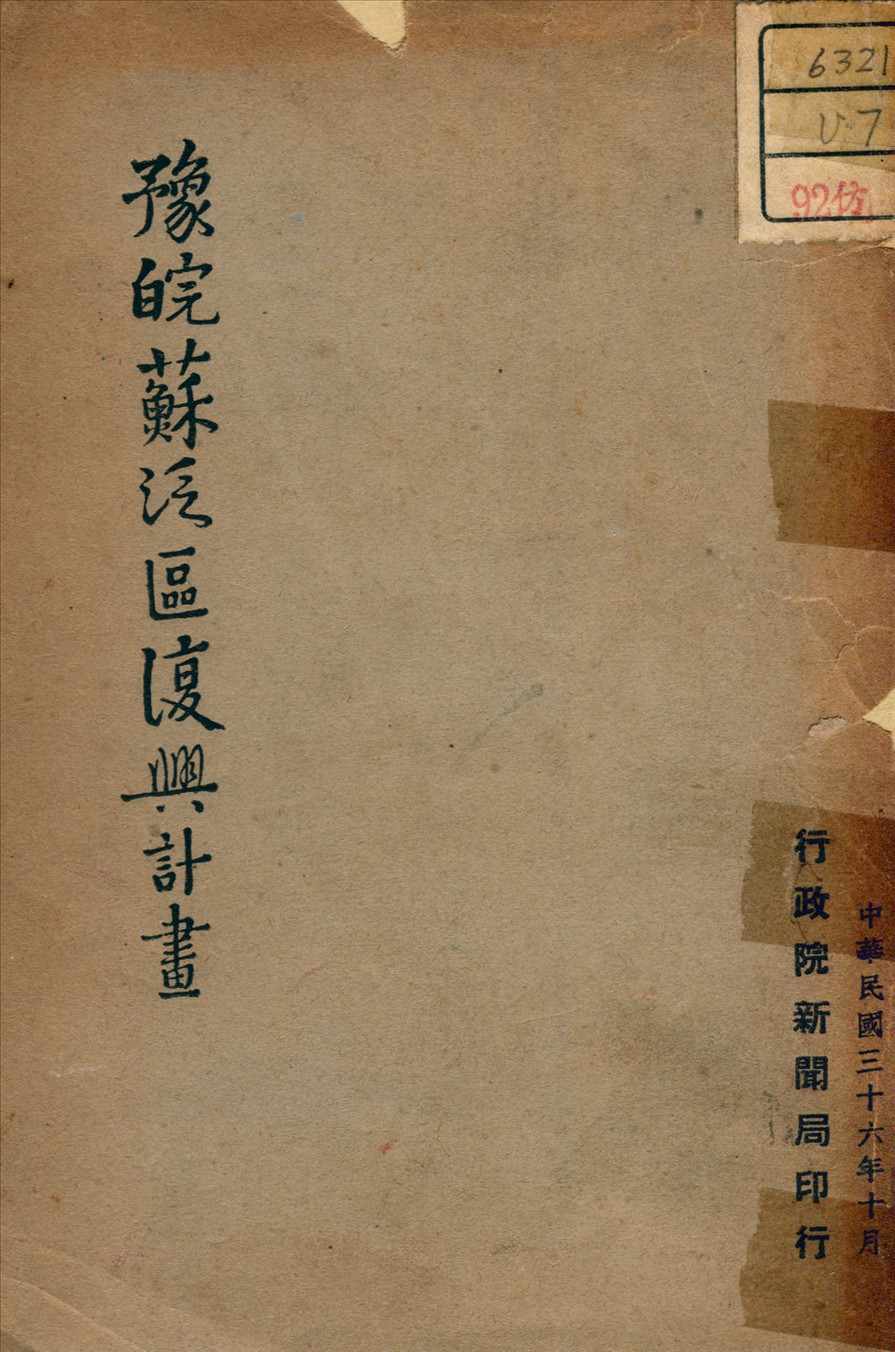 6321
V.7
92仿
中華民國三十六年十月
行政院新聞局印行
豫皖蘇泛區復興計畫